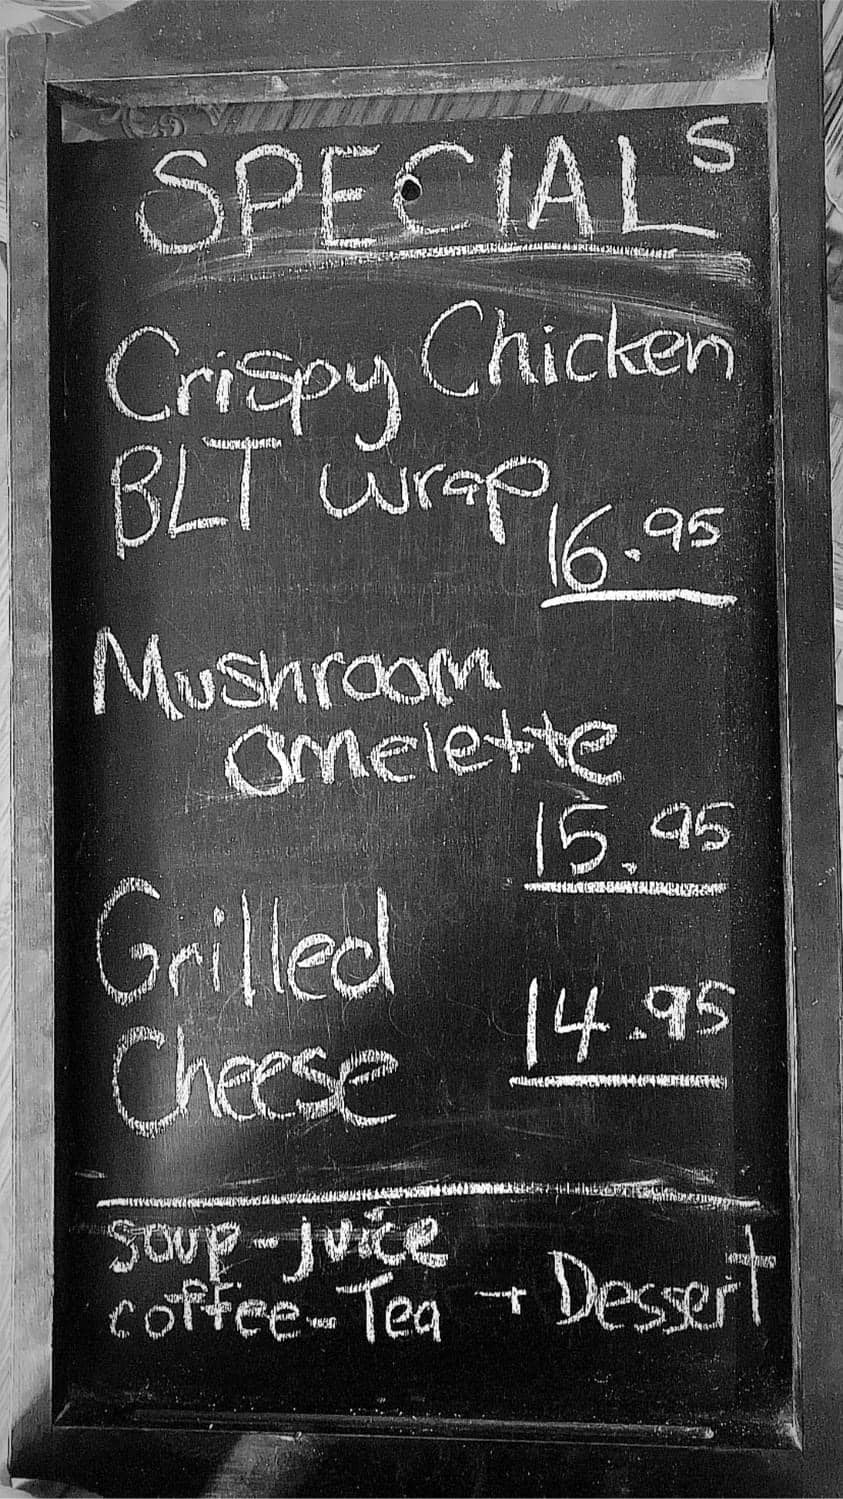 SPECIALS
Crispy Chicken
BLT wrap
16.95
Mushroom
omelette
15.95
Grilled
Cheese 14.95
soup-juice
coffee-Tea + Dessert